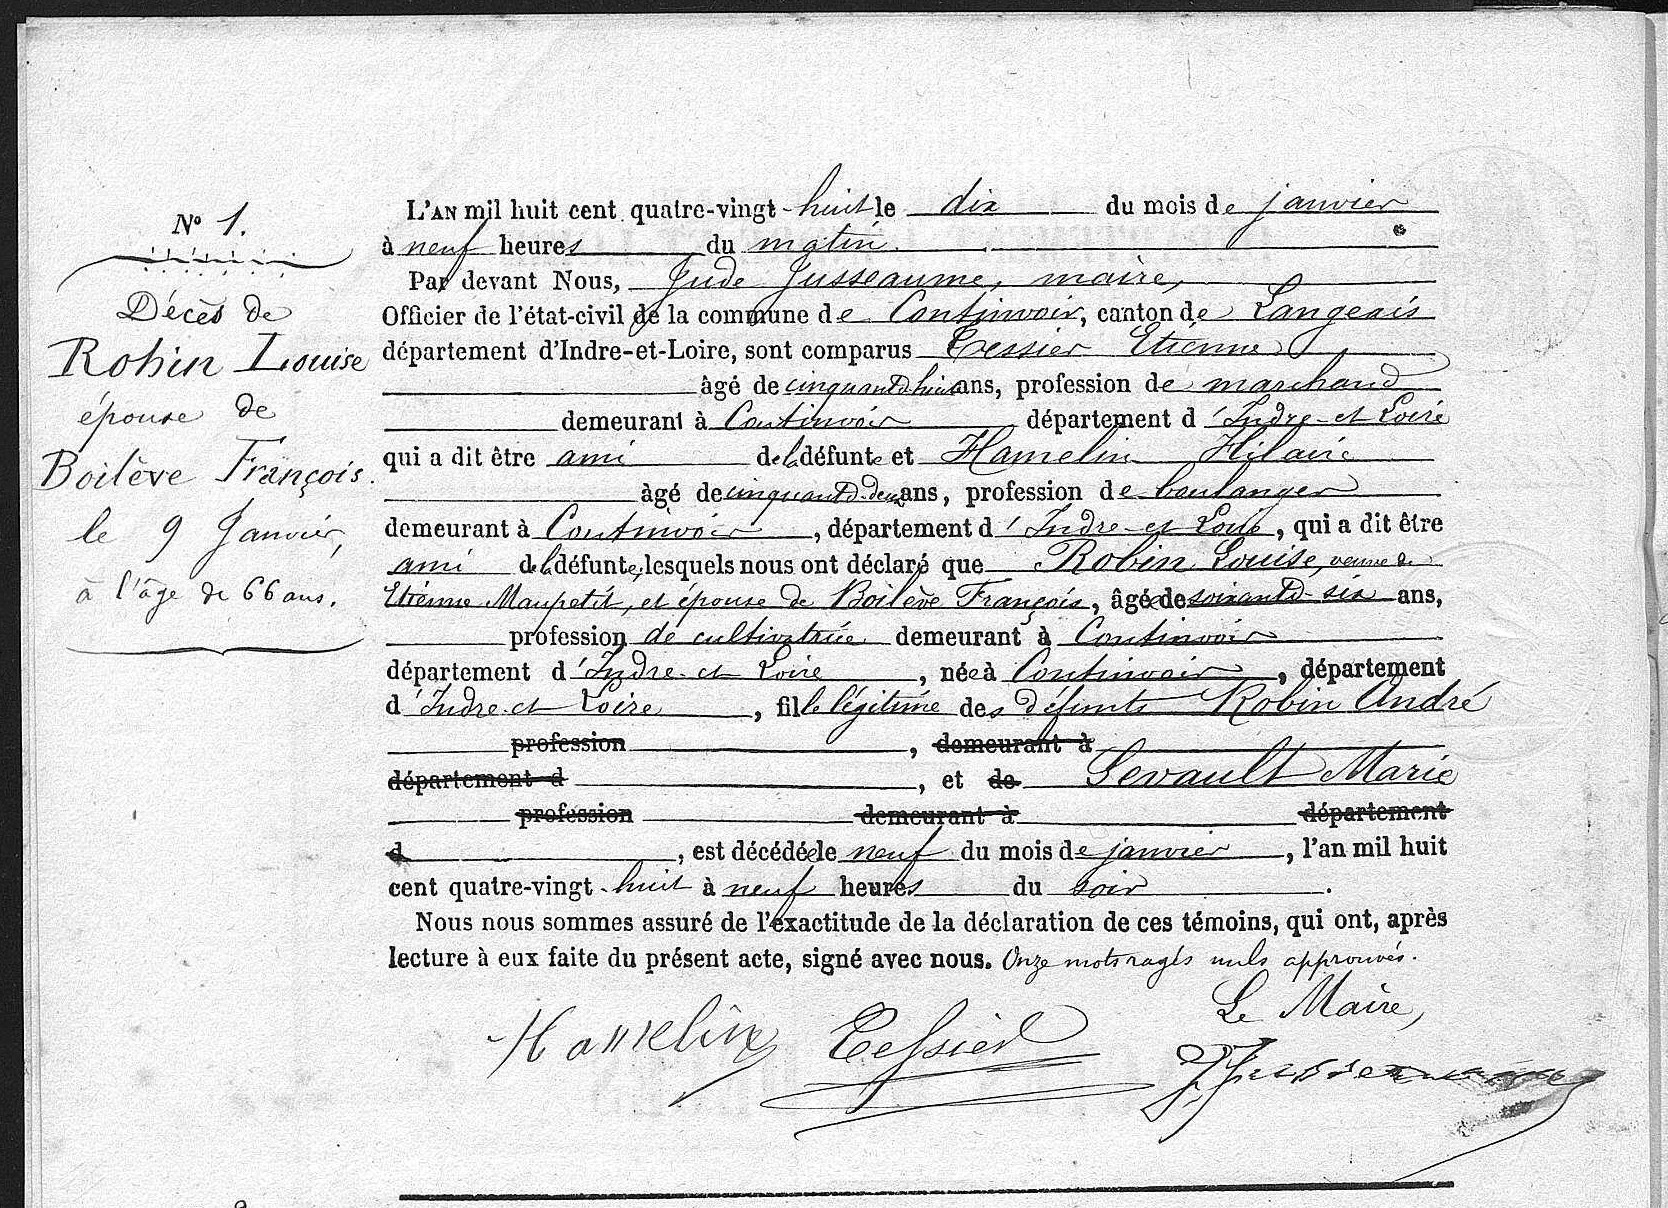 N° 1.
Décès de
Robin Louise
épouse de
Boilève François.
le 9 Janvier,
à l'âge de 66 ans.
L'AN mil huit cent quatre-vingt-huit le dix du mois de janvier
à neuf heures du matin.
Par devant Nous, Jude Jusseaume, maire,
Officier de l'état-civil de la commune de Continvoir, canton de Langeais
département d'Indre-et-Loire, sont comparus Tessier Etienne
âgé de cinquante huit ans, profession de marchand
demeurant à Continvoir département d'Indre-et-Loire
qui a dit être ami de la défunte et Hamelin Hilaire
âgé de cinquante-deux ans, profession de boulanger
demeurant à Continvoir, département d'Indre-et-Loire, qui a dit être
ami de la défunte, lesquels nous ont déclaré que Robin Louise, veuve de
Etienne Maupetit, et épouse de Boilève François, âgée de soixante-six ans,
profession de cultivatrice demeurant à Continvoir
département d'Indre-et-Loire, née à Continvoir, département
d'Indre-et-Loire, fille légitime des défunts Robin André
profession, demeurant à
département d, et de Levault Marie
profession demeurant à département
d, est décédée le neuf du mois de janvier, l'an mil huit
cent quatre-vingt-huit à neuf heures du soir.
Nous nous sommes assuré de l'exactitude de la déclaration de ces témoins, qui ont, après
lecture à eux faite du présent acte, signé avec nous. Onze mots rayés nuls approuvés.
Le Maire,
Hamelin Tessier J Jusseaume